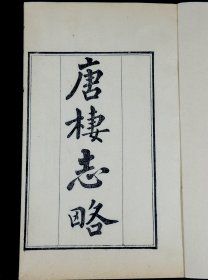 唐棲志略